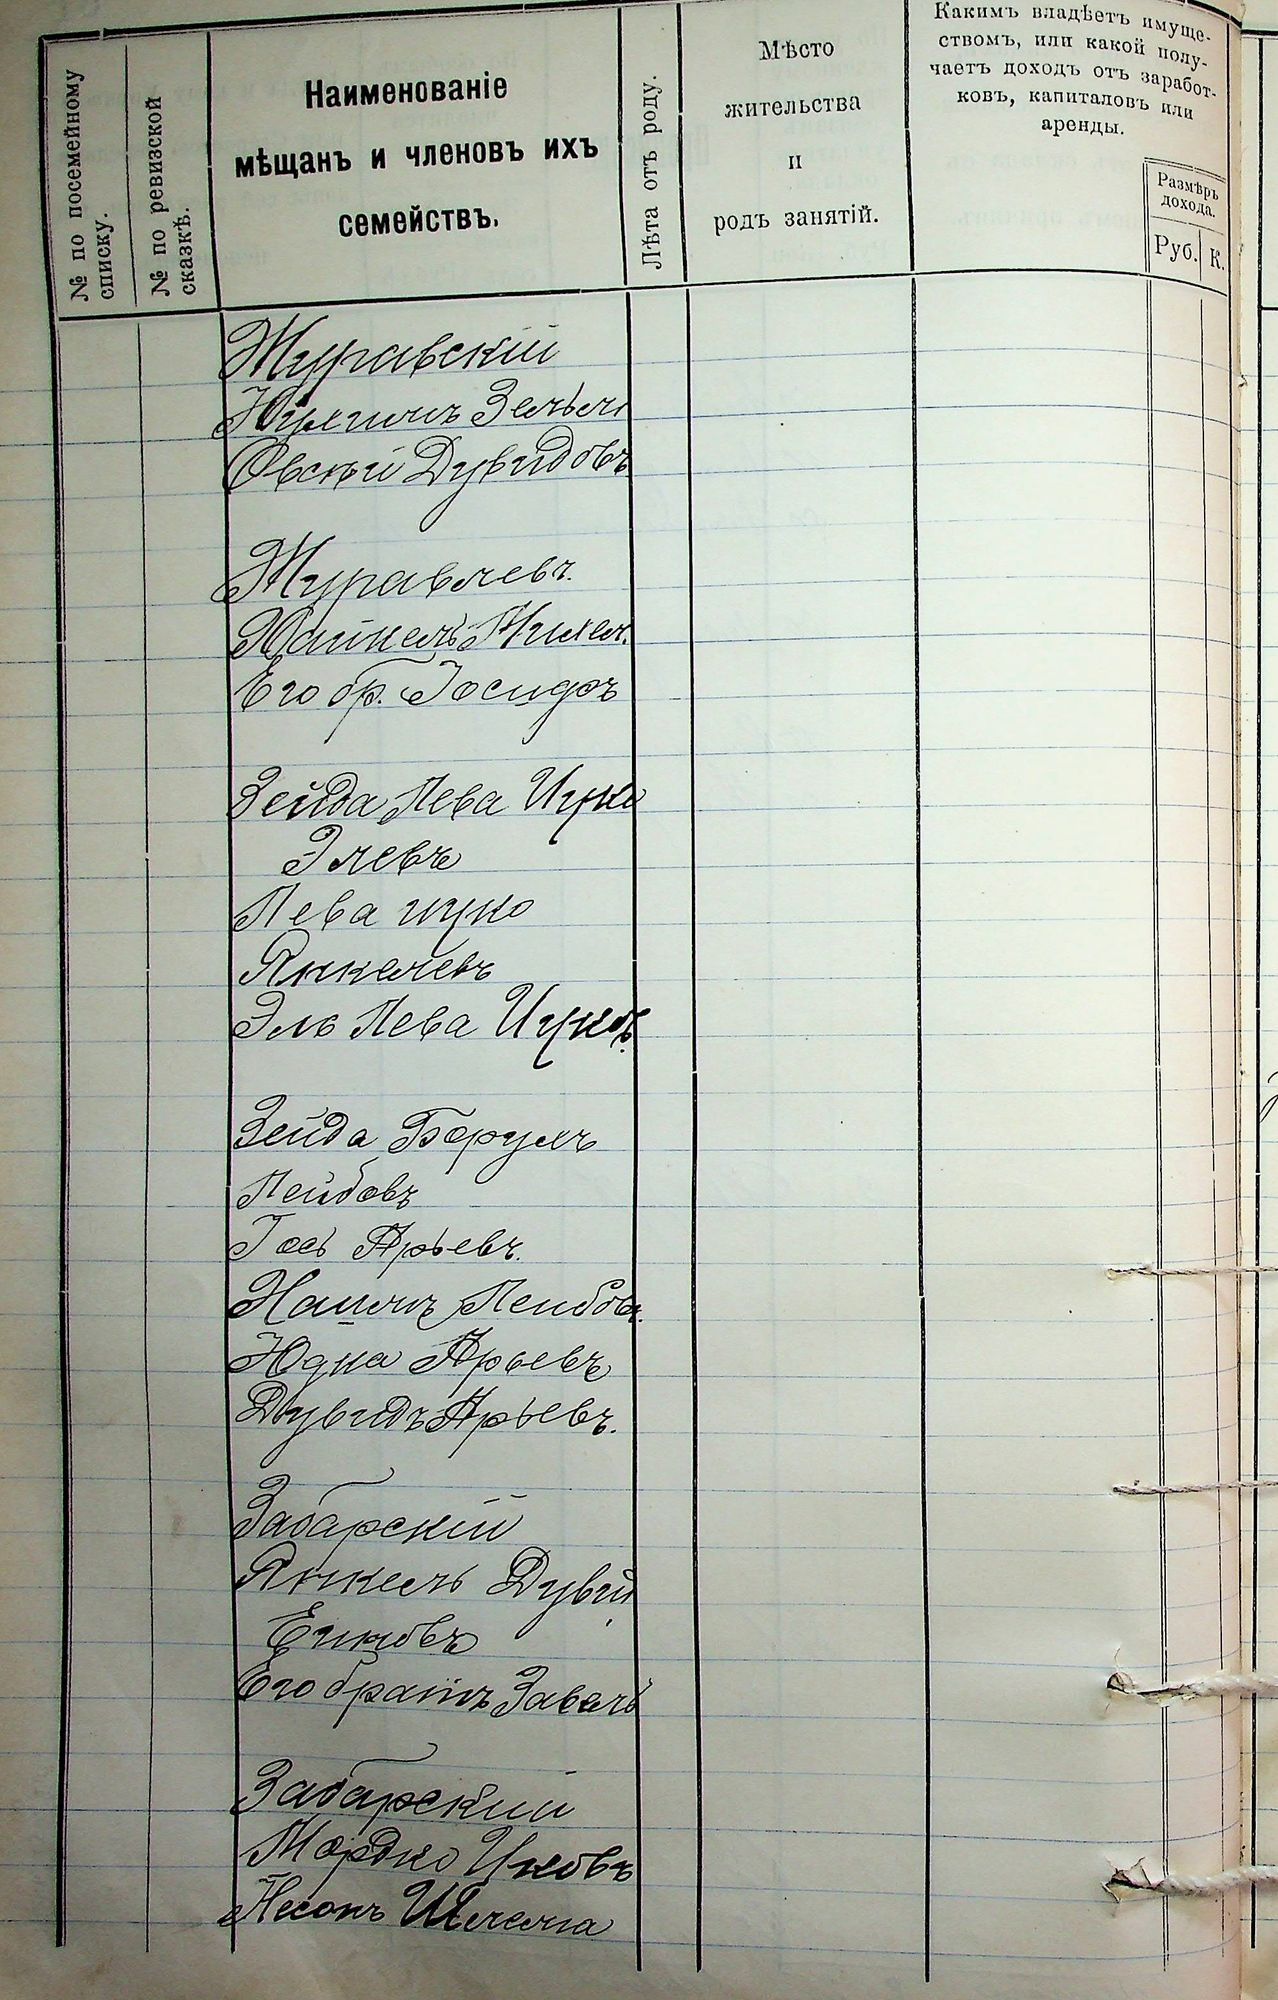 № по посемейному
списку.
№ по ревизской
сказкѣ.
Наименованіе
мѣщанъ и членовъ ихъ
семействъ.
Лѣта отъ роду.
Мѣсто
жительства
и
родъ занятій.
Какимъ владѣетъ имуще-
ствомъ, или какой полу-
чаетъ доходъ отъ заработ-
ковъ, капиталовъ или
аренды.
Размѣръ
дохода.
Руб.
К.
Журавскій
Зельм
Овсѣй Дувидовъ
Журавлевъ
Его бр. Іосифъ
Зейда Лева Ицко
Элевъ
Лева ицко
Янкелевъ
Эль Лева Ицков.
Зейда Борухъ
Лейбовъ
Іось Арьевъ.
Лейбов.
Юдка Арьевъ
Дувидъ Арьевъ.
Забарскій
Янкель Дувид
Ениковъ
Его братъ Завель
Забарский
Мордко Ицковъ